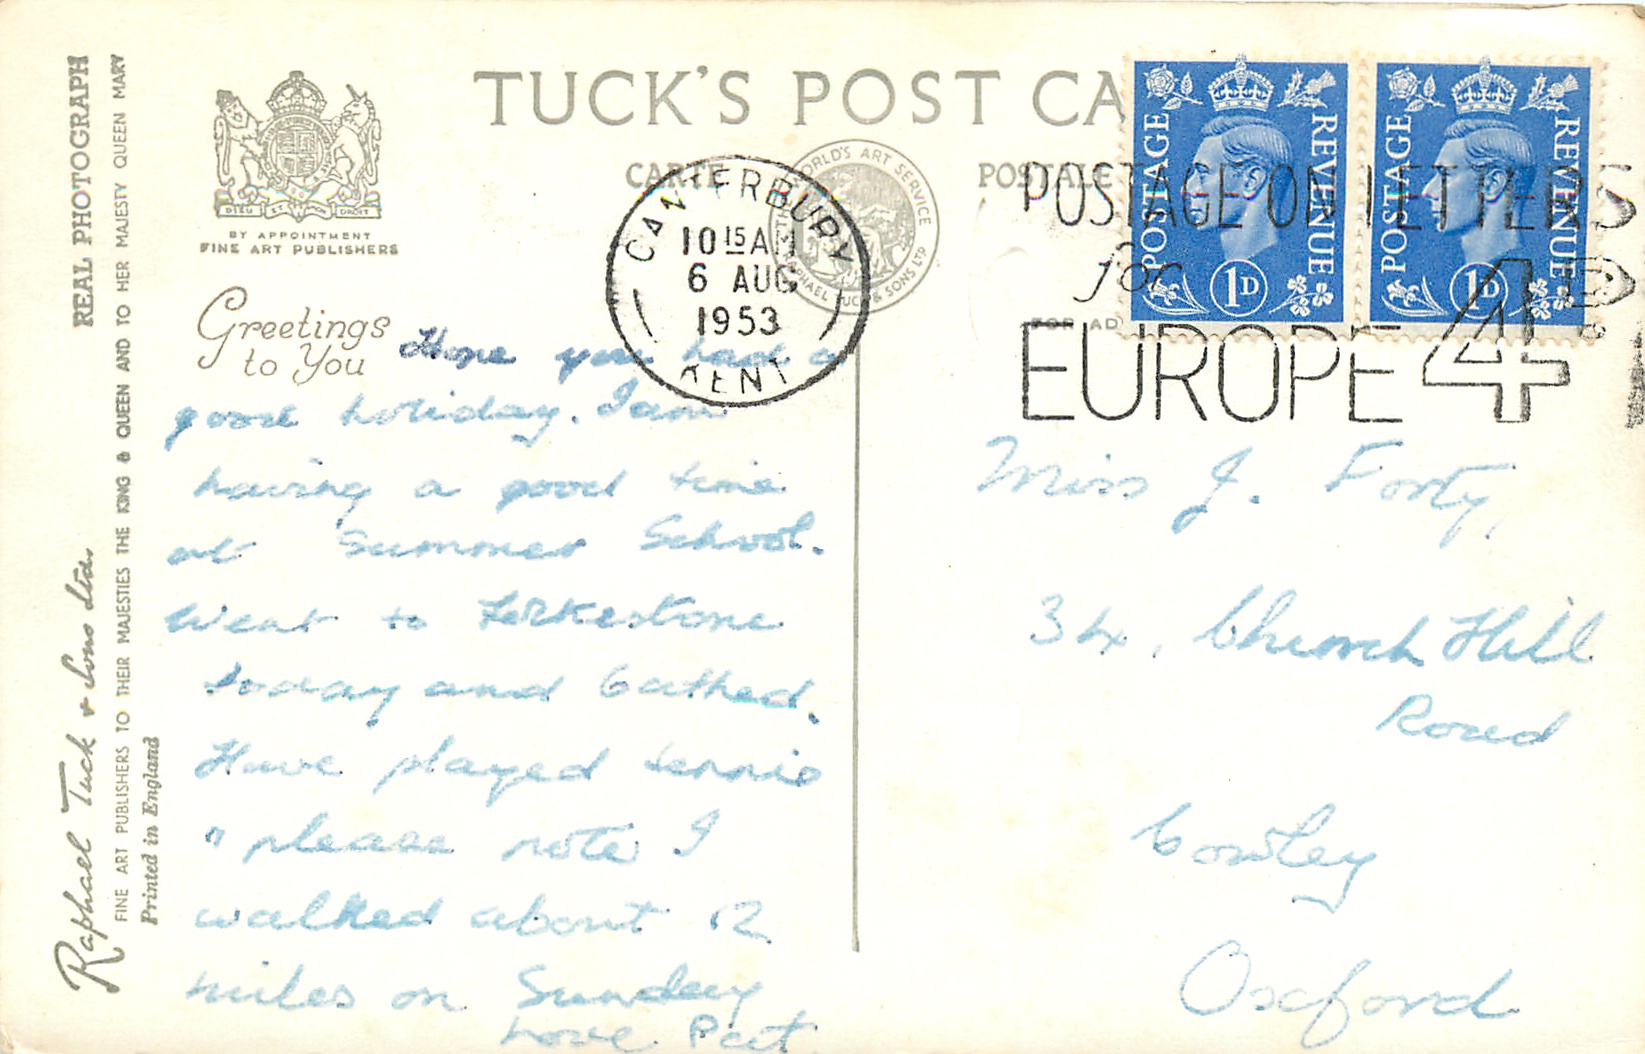 TUCK'S POST CA
CARTE POSTALE
REAL PHOTOGRAPH
Raphael Tuck & Sons Ltd.
FINE ART PUBLISHERS TO THEIR MAJESTIES THE KING & QUEEN AND TO HER MAJESTY QUEEN MARY
Printed in England
DIEU ET MON DROIT
BY APPOINTMENT
FINE ART PUBLISHERS
THE WORLD'S ART SERVICE
RAPHAEL TUCK & SONS LTD
CANTERBURY
10 15 AM
6 AUG
1953
KENT
POSTAGE REVENUE
1D
POSTAGE REVENUE
1D
POSTAGE ON LETTERS
for
EUROPE 4D.
FOR AD
Greetings
to You
Hope you had a
good holiday. I am
having a good time
at Summer School.
Went to Folkestone
today and bathed.
Have played tennis
" please note I
walked about 12
miles on Sunday
Love Pat.
Miss J. Forty,
34, Church Hill
Road
Cowley
Oxford